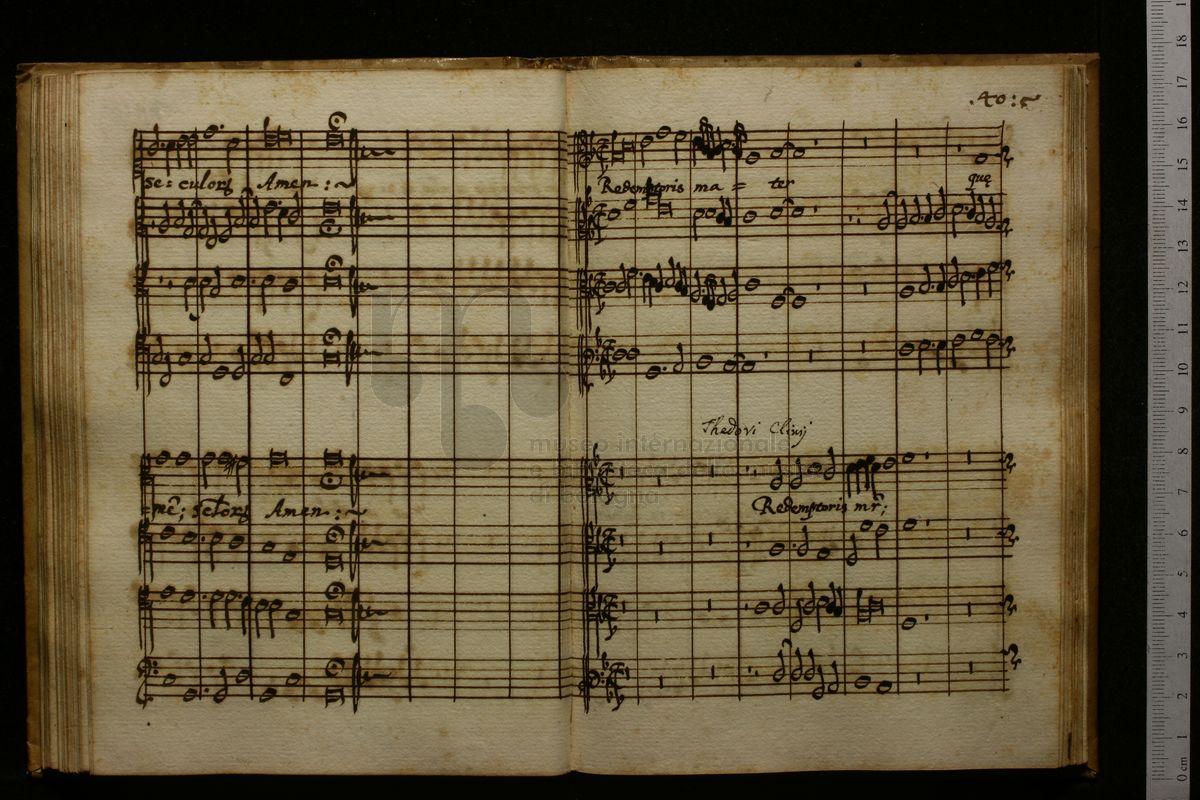 .40:
se: culorz Amen :~
=mē; setorz Amen :~
Redemptoris ma = ter quę
Redemptoris mr̄;
museo internazionale
e biblioteca della musica
di bologna
0 cm 1 2 3 4 5 6 7 8 9 10 11 12 13 14 15 16 17 18